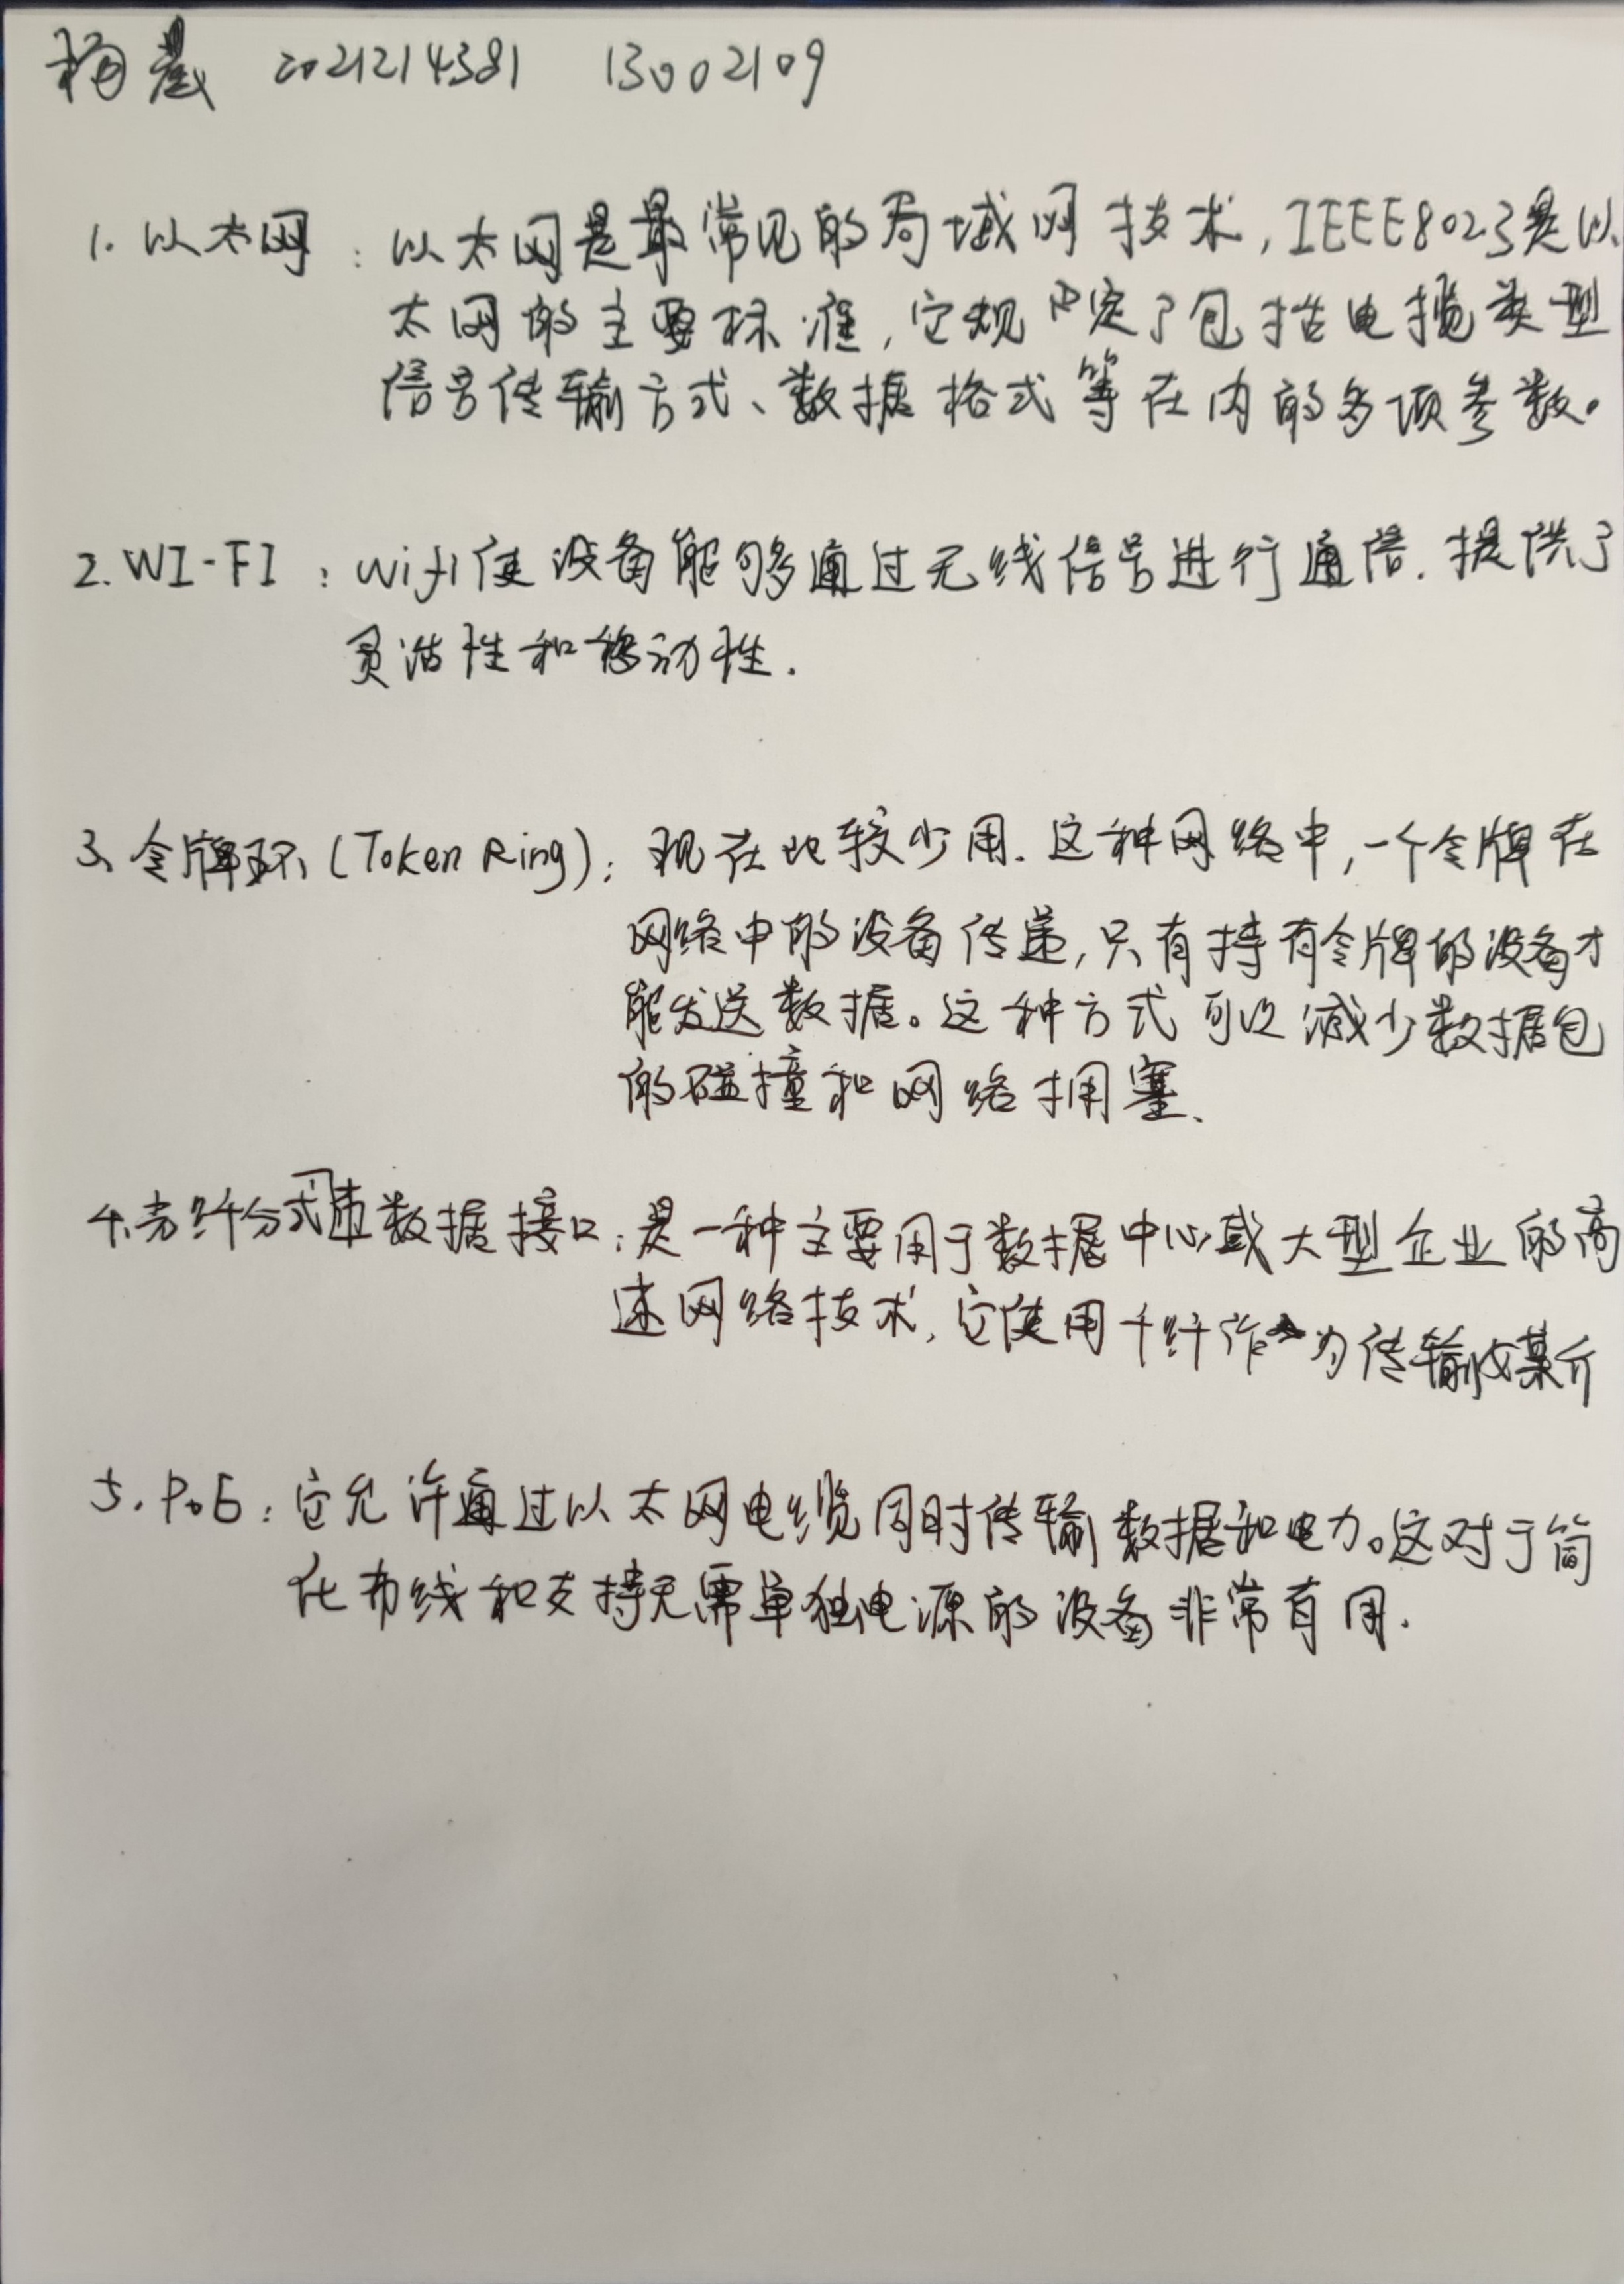 杨晨 2021214381 13002109
1. 以太网：以太网是最常见的局域网技术，IEEE802.3是以
太网的主要标准，它规定了包括电揽类型
信号传输方式、数据格式等在内的多项参数。
2. WI-FI：wifi使设备能够通过无线信号进行通信．提供了
灵活性和移动性．
3、令牌环（Token Ring）：现在比较少用．这种网络中，一个令牌在
网络中的设备传递，只有持有令牌的设备才
能发送数据。这种方式可以减少数据包
的碰撞和网络拥塞、
4.光纤分式数据接口：是一种主要用于数据中心或大型企业的高
速网络技术，它使用千纤作为传输媒介
5. PoE：它允许通过以太网电缆同时传输数据和电力。这对于简
化布线和支持无需单独电源的设备非常有用．